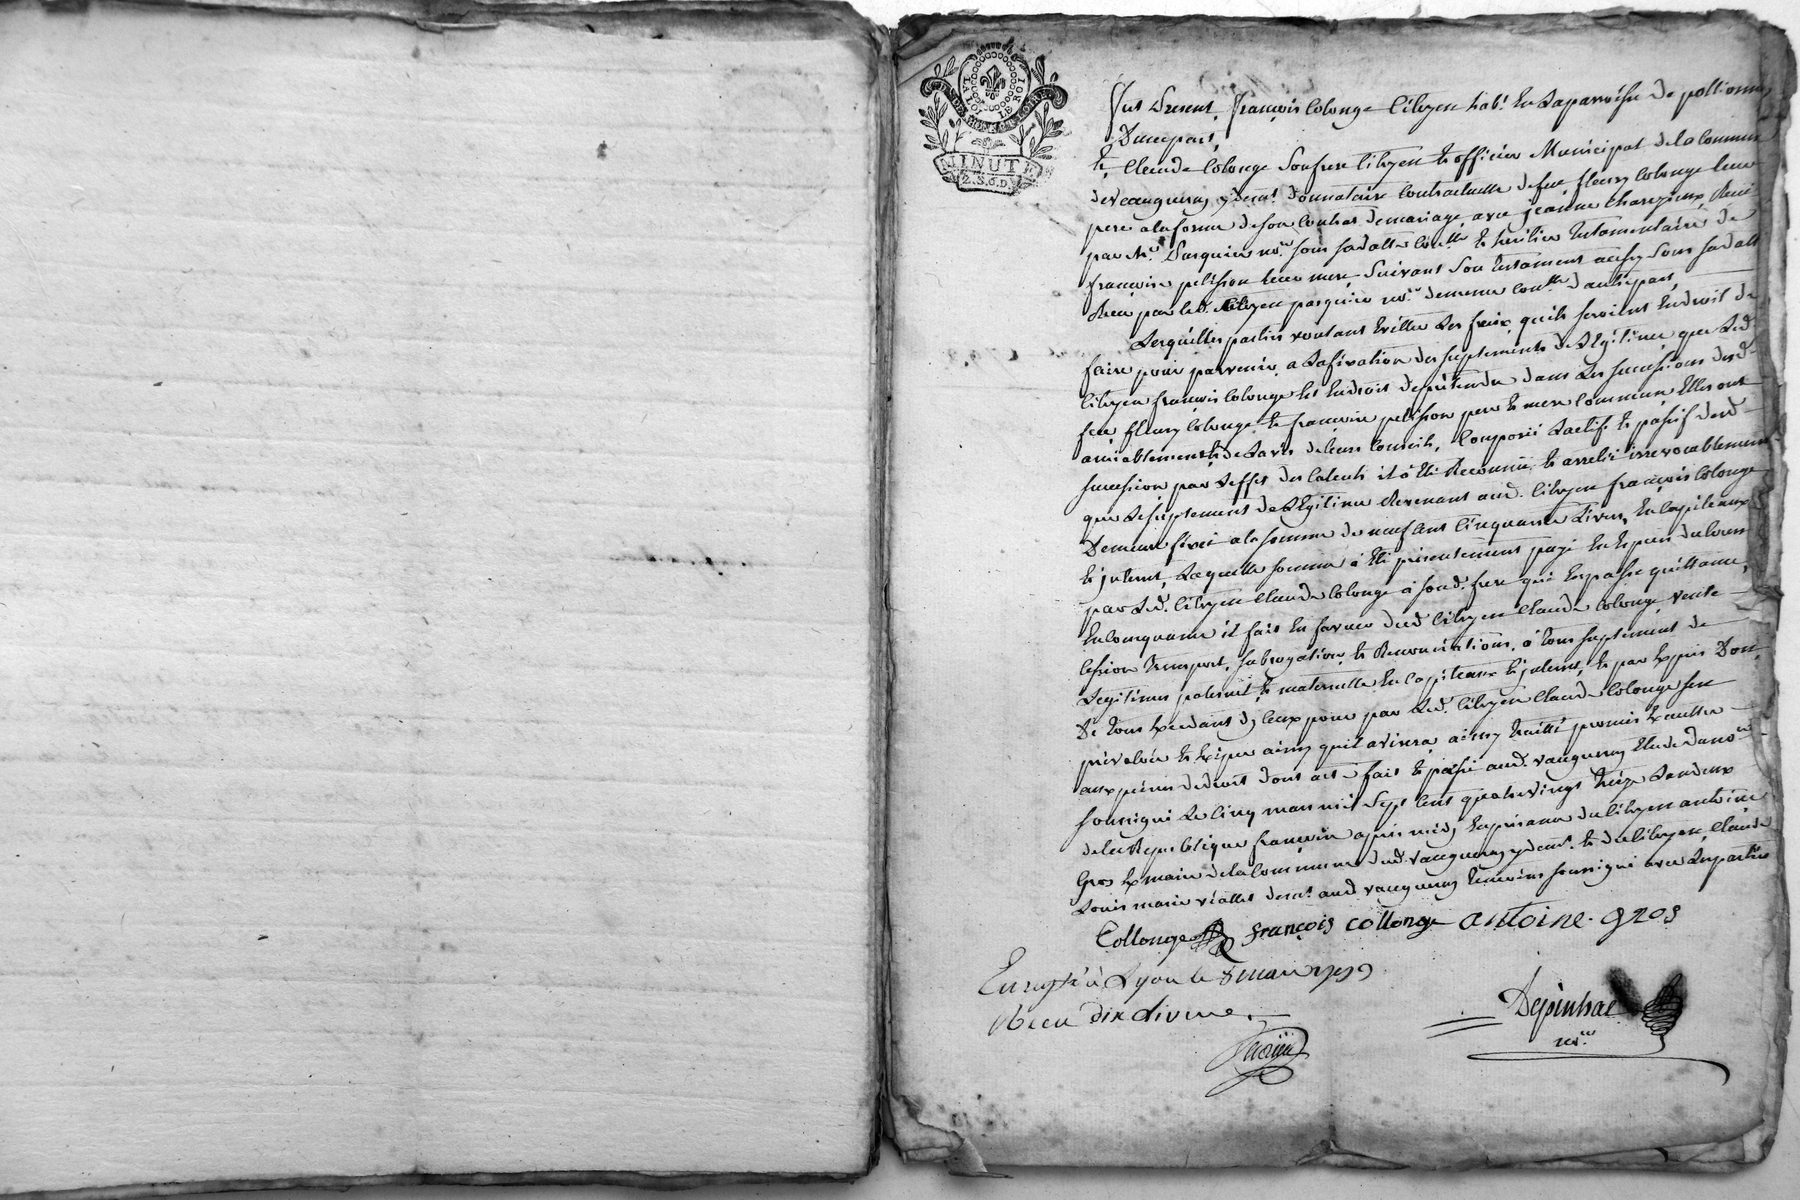 LA LOI LE ROI
DEP. DE RHONE ET LOIRE
MINUTE
2.S.6.D.
fut Present, françois Colonge Citoyen hab.t En La parroisse de pollionnay
D'une part,
Et Claude Colonge Son frere Citoyen Et officier Municipal de la Commune
de Vaugneray y dem.t donnataire Contractuelle de feu fleury Colonge leur
pere a la forme de son Contrat de mariage avec jeanne Charezieux Reçu
par M.e Pasquier no.re sous sa datte Con.llé Et heritier Testamentaire de
françoise pelisson leur mere, Suivant Son Testament aussy Sous sa datte
Recu par led. Citoyen pasquier no.re de meme Con.llé d'autre part,
Lesquelles parties voulant Eviter Les frais quils seroient En droit de
faire pour parvenir a La fixation des suplements de Legitime que Led.
Citoyen françois Colonge Est En droit de pretendre dans Les successions desd.
feu fleury Colonge Et françoise pelisson pere Et mere Commun Elles ont
amiablement Et de L'avis de leurs Conseils, Composé L'actif Et passif desd.
succession par L'effet des Calculs il a Eté Reconnu, Et arreté irrevocablement
que Le suplement de Legitime Revenant aud. Citoyen françois Colonge
Demeure fixé a la somme de neuf Cent Cinquante Livres, En Capiteaux
Et jnterest, Laquelle somme a Eté présentement payé En Especes du Cours
par Led. Citoyen Claude Colonge à sond. frere qui En passe quittance,
En Consequence il fait En faveur dud. Citoyen Claude Colonge, vente
Cession Transport, subrogation Et Renonciations, à tous suplement de
Legitimes paternel Et maternelle En Capiteaux Et jnterest, Et par Exprès Don
De tous pendant d'Ceux pour par Led. Citoyen Claude Colonge s'en
prévaloir Et Exiger ainsy qu'il avisera ainsy Traitté promis Executer
aux peines de droit dont acte fait Et passé aud. Vaugneray Etude du no.re
soussigné Le Cinq mars mil Sept Cent quatre vingt treize L'an deux
de la Republique françoise après midy En présence du Citoyen antoine
Gros Ex maire de la Commune dud. Vaugneray y dem.t Et du Citoyen Claude
Louis marie viallet dem.t aud. Vaugneray Temoins soussigné avec Les parties
Collonge françois collonge antoine gros
Enregtré à Lyon le 8 mars 1793
Reçu dix livres
Depinhac
no.re